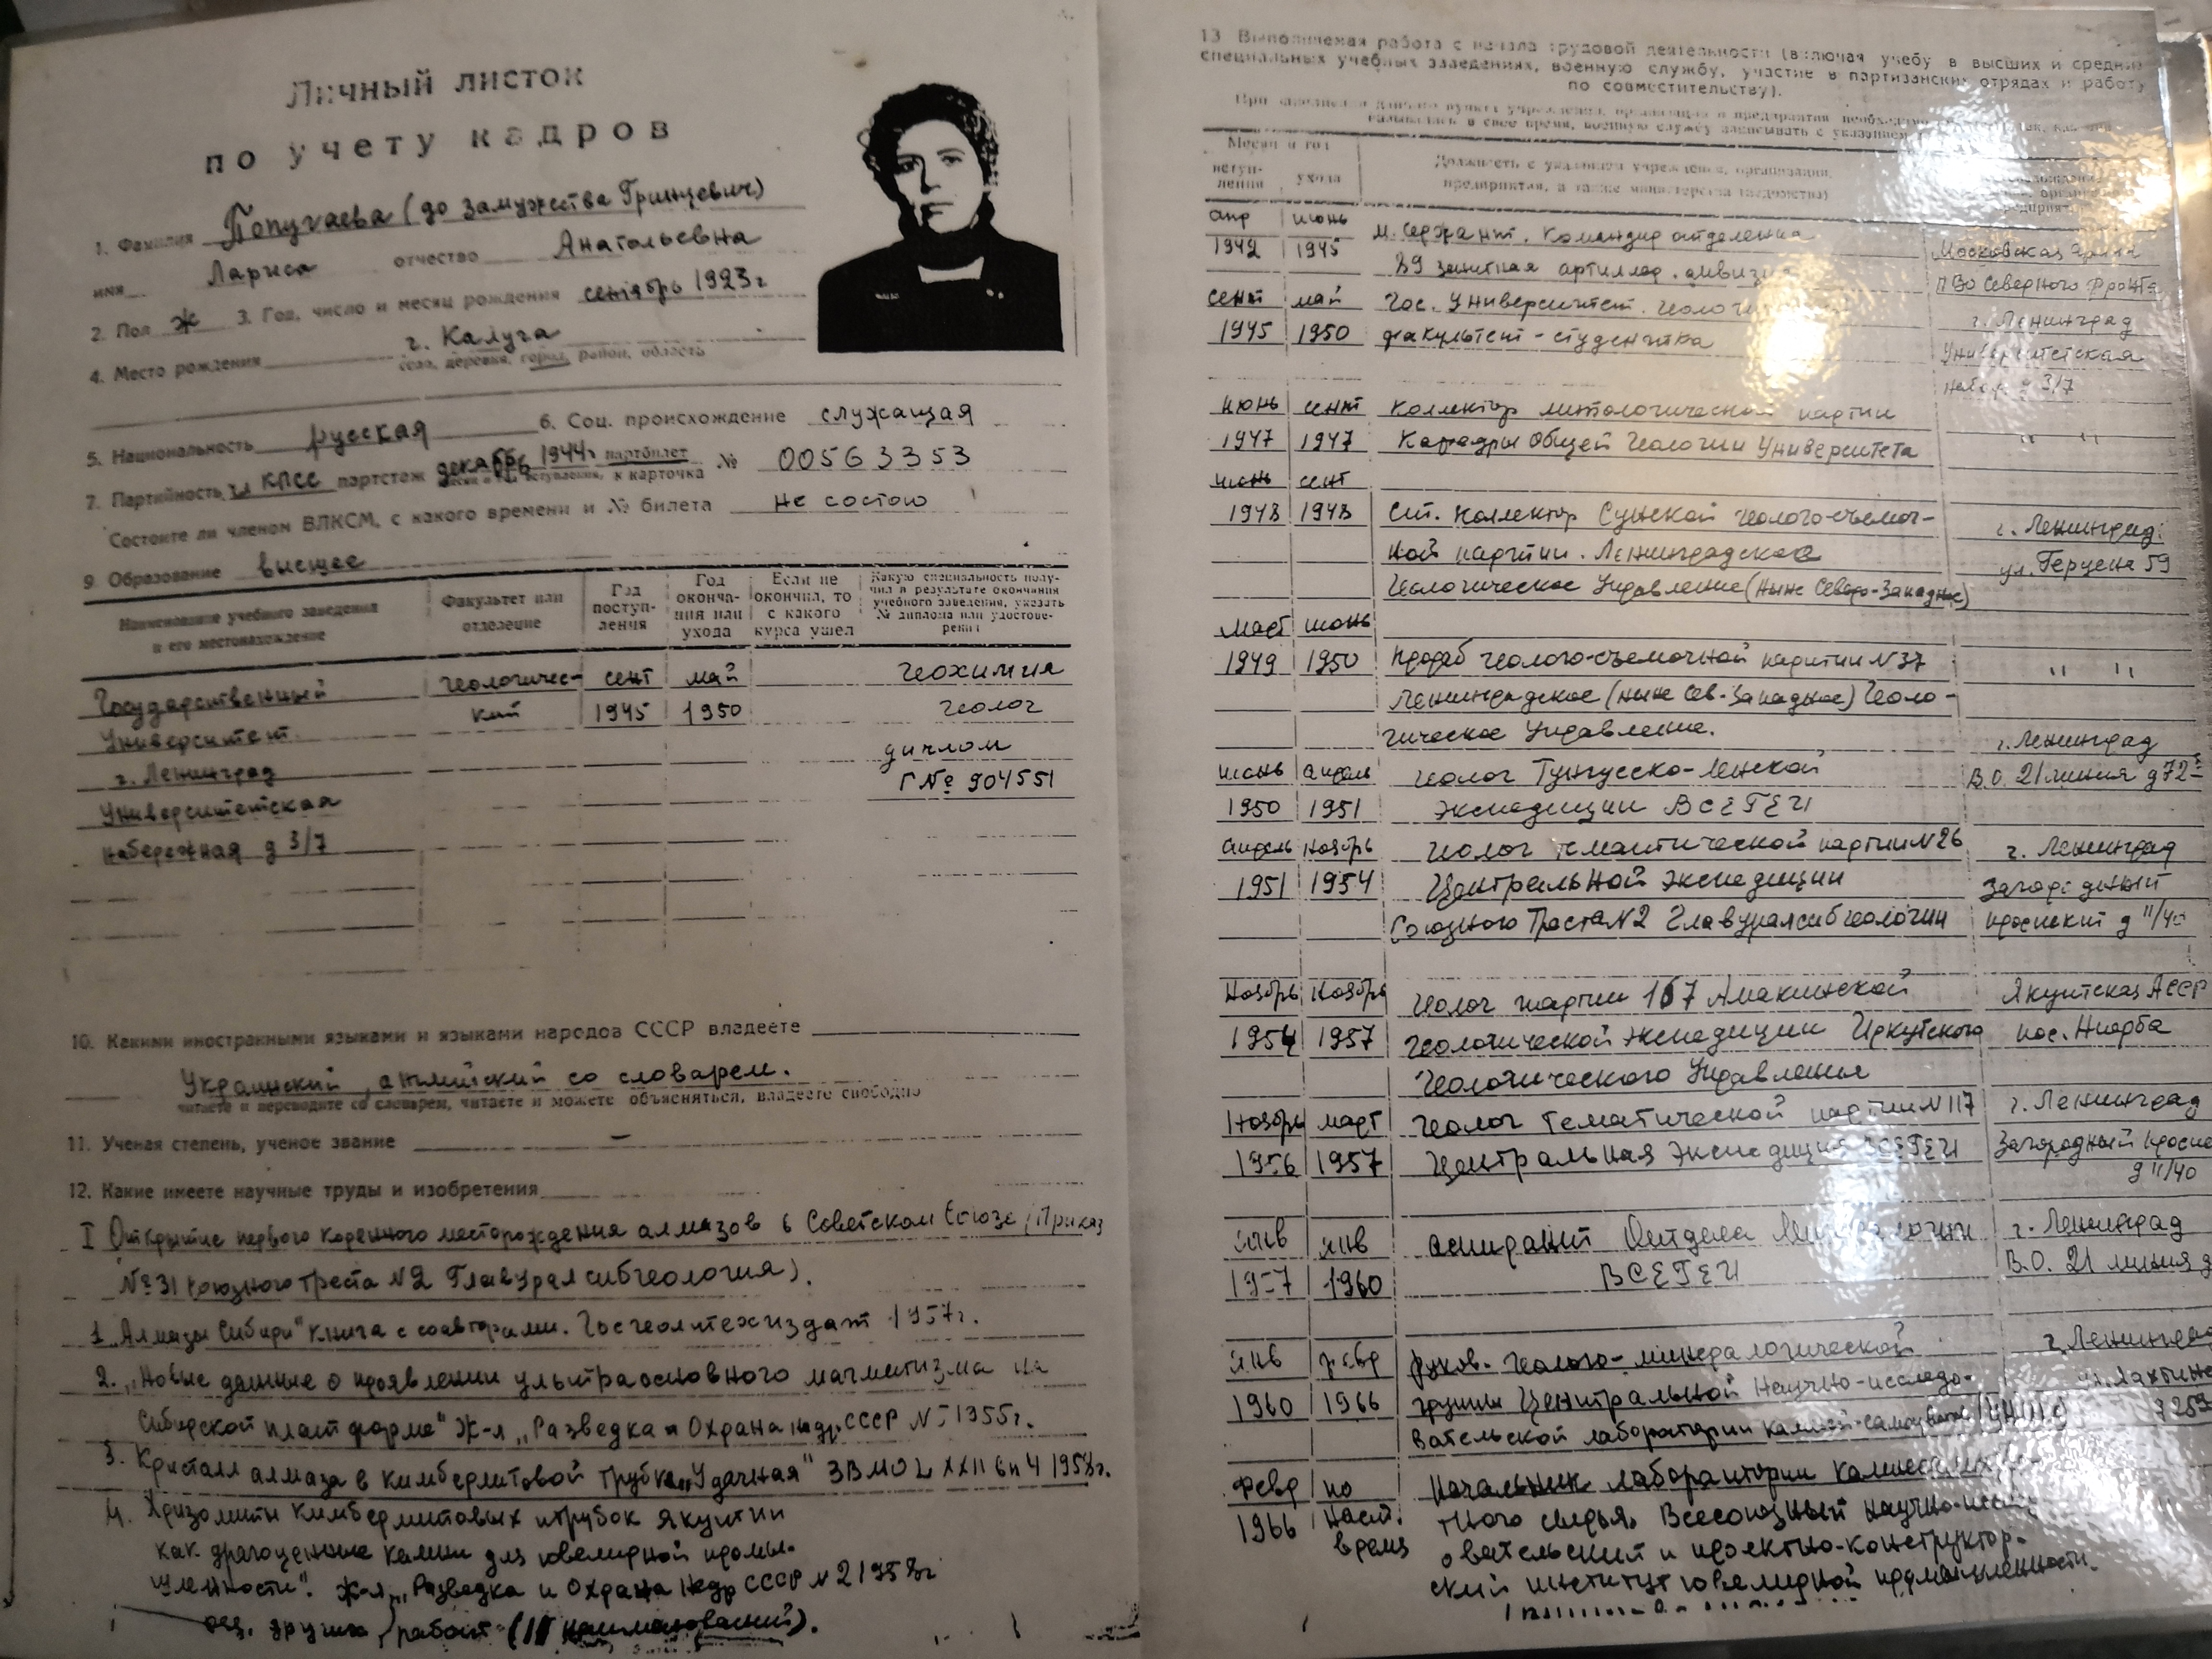 Личный листок
по учету кадров
1. Фамилия Попугаева (до замужества Гринцевич)
имя Лариса отчество Анатольевна
2. Пол ж 3. Год, число и месяц рождения сентябрь 1923г
4. Место рождения г. Калуга
село, деревня, город, район, область
5. Национальность русская 6. Соц. происхождение служащая
7. Партийность чл КПСС партстаж декабрь 1944г партбилет № 00563353
вступления, к карточка
Состоите ли членом ВЛКСМ, с какого времени и № билета не состою
9. Образование высшее
Наименование учебного заведения и его местонахождение
Факультет или отделение
Год поступления
Год окончания или ухода
Если не окончил, то с какого курса ушел
Какую специальность получил в результате окончания учебного заведения, указать № диплома или удостоверения
Государственный геологичес- сент май геохимия
Университет кий 1945 1950 геолог
г. Ленинград диплом
Университетская Г № 904551
набережная д 3/7
10. Какими иностранными языками и языками народов СССР владеете
Украинский, английский со словарем.
читаете и переводите со словарем, читаете и можете объясняться, владеете свободно
11. Ученая степень, ученое звание —
12. Какие имеете научные труды и изобретения
I Открытие первого коренного месторождения алмазов в Советском Союзе (Приказ
№31 Союзного Треста N2 Главуралсибгеология).
1. „Алмазы Сибири" книга с соавторами. Госгеолтехиздат 1957г.
2. „Новые данные о проявлении ультраосновного магматизма на
Сибирской платформе" Ж-л „Разведка и Охрана недр СССР 1955г.
3. Кристалл алмаза в кимберлитовой трубке „Удачная" ЗВМО
4. Хризолиты кимберлитовых трубок Якутии
как драгоценные камни для ювелирной промы-
шленности". Ж-л „Разведка и Охрана Недр СССР N 2 1958г
других работ (11 наименований).
13 Выполняемая работа с начала трудовой деятельности (включая учебу в высших и средних
специальных учебных заведениях, военную службу, участие в партизанских отрядах и работу
по совместительству).
При заполнении данного пункта учреждения, организации и предприятия необходимо
назывались в свое время, военную службу записывать с указанием
Месяц и год
вступ-
ления
ухода
Должность с указанием учреждения, организации,
предприятия, а также министерства (ведомства)
апр июнь м. Сержант. Командир отделения Московская
1942 1945 89 зенитная артиллер. дивизия ПВО Северного Фронта
сент май Гос. Университет. г. Ленинград
1945 1950 факультет - студентка Университетская
д 3/7
июнь сент Коллектор литологической партии
1947 1947 Кафедры Общей Геологии Университета " "
июнь сент
1948 1948 Ст. Коллектор Сунской геолого-съемоч- г. Ленинград
ной партии. Ленинградское ул. Герцена 59
Геологическое Управление (ныне Северо-Западное)
март июнь
1949 1950 Прораб геолого-съемочной партии N 37 " "
Ленинградское (ныне Сев-Западное) Геоло-
гическое Управление. г. Ленинград
июнь апрель геолог Тунгусско-Ленской В.О. 21 линия д 72
1950 1951 экспедиции ВСЕГЕИ
апрель ноябрь геолог тематической партии N 26 г. Ленинград
1951 1954 Центральной экспедиции Загородный
Союзного Треста N2 Главуралсибгеологии проспект д 11/40
Ноябрь Ноябрь геолог партии 167 Амакинской Якутская АССР
1954 1957 геологической экспедиции Иркутского пос. Нюрба
геологического Управления
Ноябрь март геолог тематической партии N 117 г. Ленинград
1956 1957 Центральная Экспедиция ВСЕГЕИ Загородный
д 11/40
янв янв аспирант Отдела Минералогии г. Ленинград
1957 1960 ВСЕГЕИ В.О. 21 линия д
янв февр руков. геолого-минералогической г Ленинград
1960 1966 группы Центральной Научно-исследо-
вательской лаборатории камней-самоцветов
февр по Начальник лаборатории
1966 наст. сырья. Всесоюзный
время и проектно-конструктор-
ский институт ювелирной промышленности.